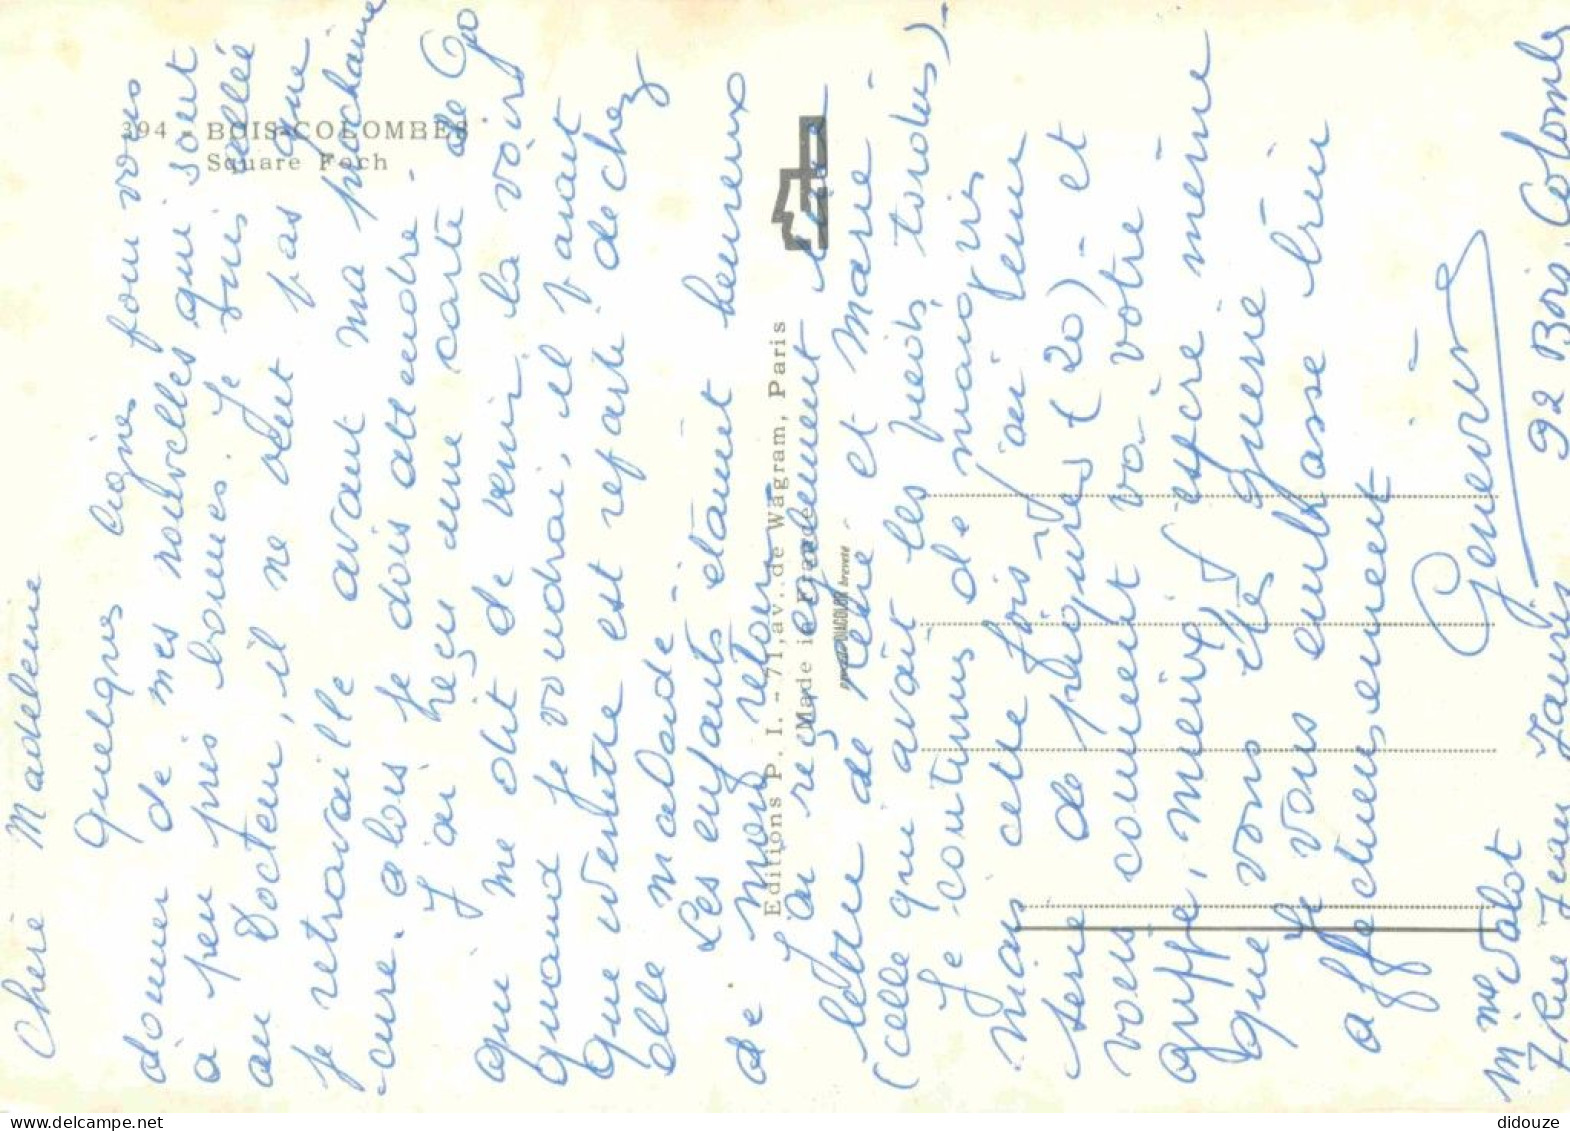 Chère Madeleine
Quelques lignes pour vous
donner de mes nouvelles qui sont
à peu près bonnes. Je suis allée
au Docteur, il ne veut pas que
je retravaille avant ma prochaine
cure. alors je dois attendre -
J'ai reçu une carte de Go
qui me dit de venir la voir
quand je voudrai, il parait
que Odette est reparti de chez
elle malade -
Les enfants étaient heureux
de mon retour
J'ai reçu également une
lettre de René et Marie -
(celle qui avait les pieds tordus) -
Je continue de maigrir
mais cette fois j'ai tenu
série de piqures (20) - et
vous comment va votre
griffe, mieux j'espère même
que vous êtes guérie
Je vous embrasse bien
affectueusement
Geneviève
Mme Valot
7 Rue Jean Jaurès 92 Bois Colombes
394 - BOIS-COLOMBES
Square Foch
Editions P. I. - 71, av. de Wagram, Paris
(Made in France)
DIACOLOR breveté
didouze